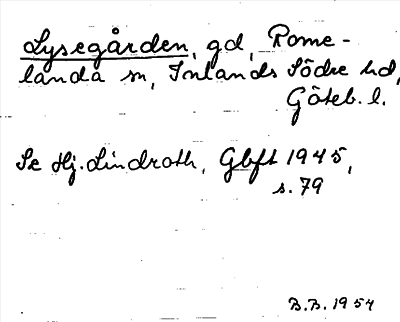 Lysegården, gd, Rome-
landa sn, Inlands Södre hd,
Göteb. l.
Se Hj. Lindroth, Gbft 1945,
s. 79
B.B. 1954